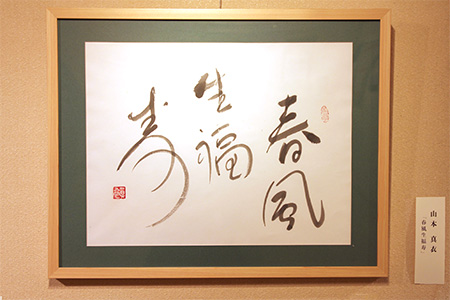 春風
生福
寿
山本 真衣
春風生福寿